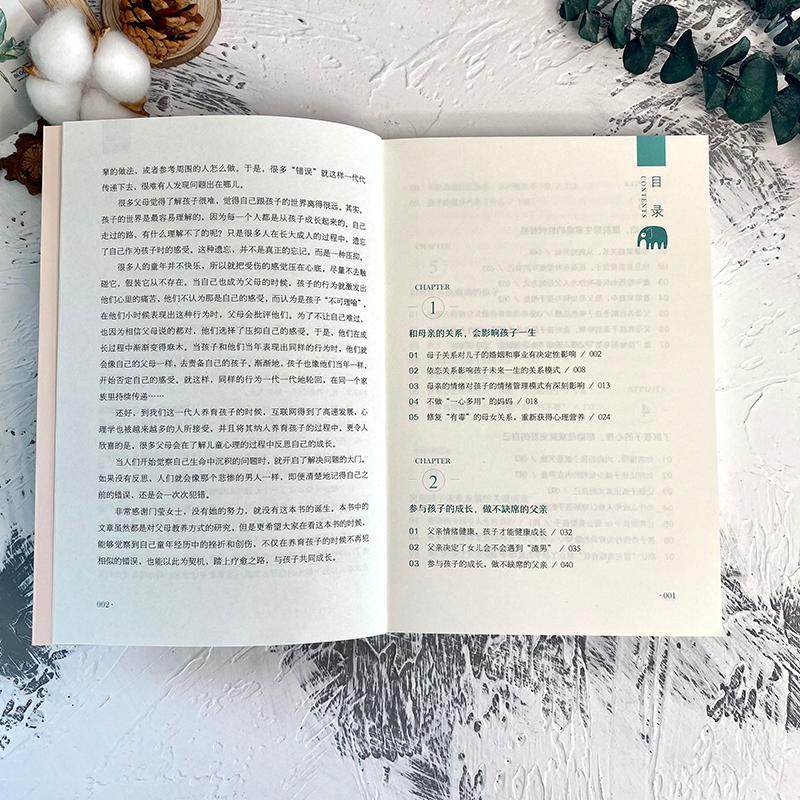 辈的做法，或者参考周围的人怎么做。于是，很多“错误”就这样一代代
传递下去，很难有人发现问题出在哪儿。
很多父母觉得了解孩子很难，觉得自己跟孩子的世界离得很远。其实，
孩子的世界是最容易理解的，因为每一个人都是从孩子成长起来的。自己
走过的路，有什么理解不了的呢？只是很多人在长大成人的过程中，遗忘
了自己作为孩子时的感受。这种遗忘，并不是真正的忘记，而是一种压抑。
很多人的童年并不快乐，所以就把受伤的感觉压在心底，尽量不去触
碰它，假装它从不存在。当自己也成为父母的时候，孩子的行为就激发出
他们心里的痛苦，他们不认为那是自己的感受，而认为是孩子“不可理喻”，
在他们小时候表现出这种行为时，父母会批评他们。为了不让自己难过，
也因为相信父母说的都对，他们选择了压抑自己的感受。于是，他们在成
长过程中渐渐变得麻木。当孩子和他们当年表现出同样的行为时，他们就
会像自己的父母一样，去责备自己的孩子。渐渐地，孩子也像他们当年一样，
开始否定自己的感受。就这样，同样的行为一代一代地轮回，在同一个家
族里持续传递……
还好，到我们这一代人养育孩子的时候，互联网得到了高速发展，心
理学也被越来越多的人所接受，并且将其纳入养育孩子的过程中。更令人
欣喜的是，很多父母会在了解儿童心理的过程中反思自己的成长。
当人们开始觉察自己生命中沉积的问题时，就开启了解决问题的大门。
如果没有反思，人们就会像那个悲惨的男人一样，即便清楚地记得自己之
前的错误，还是会一次次犯错。
非常感谢门莹女士，没有她的努力，就没有这本书的诞生。本书中的
文章虽然都是对父母教养方式的研究，但是更希望大家在看这本书的时候，
能够觉察到自己童年经历中的挫折和创伤，不仅在养育孩子的时候不再犯
相似的错误，也能以此为契机，踏上疗愈之路，与孩子共同成长。
002·
目录
CONTENTS
CHAPTER
1
和母亲的关系，会影响孩子一生
01 母子关系对儿子的婚姻和事业有决定性影响 / 002
02 依恋关系影响孩子未来一生的关系模式 / 008
03 母亲的情绪对孩子的情绪管理模式有深刻影响 / 013
04 不做“一心多用”的妈妈 / 018
05 修复“有毒”的母女关系，重新获得心理营养 / 024
CHAPTER
2
参与孩子的成长，做不缺席的父亲
01 父亲情绪健康，孩子才能健康成长 / 032
02 父亲决定了女儿会不会遇到“渣男” / 035
03 参与孩子的成长，做不缺席的父亲 / 040
·001